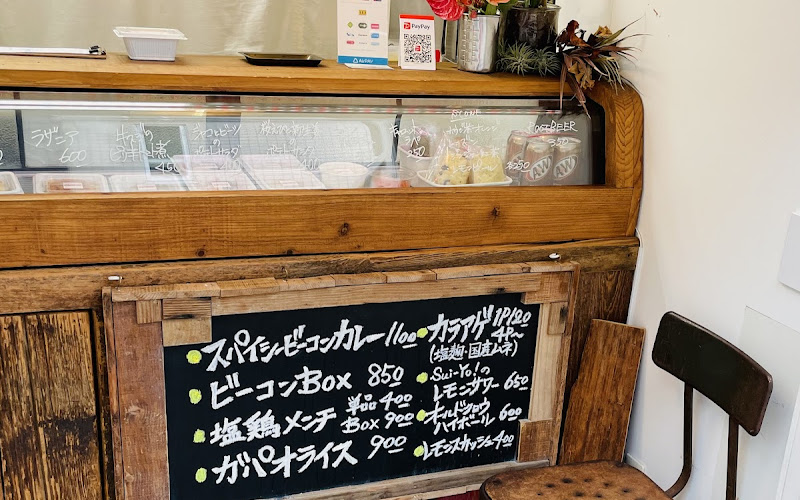 PayPay
ラザニア
600
450
350
ROOT BEER
350
A&W
A&W
スパイシービーコンカレー 1100
ビーコンBOX 850
塩鶏メンチ 単品 400
BOX 900
ガパオライス 900
カラアゲ 1P 120
4P~
(塩麹・国産ムネ)
Sui-Yo!の
レモンサワー 650
オールドクロウ
ハイボール 600
レモンスカッシュ 400